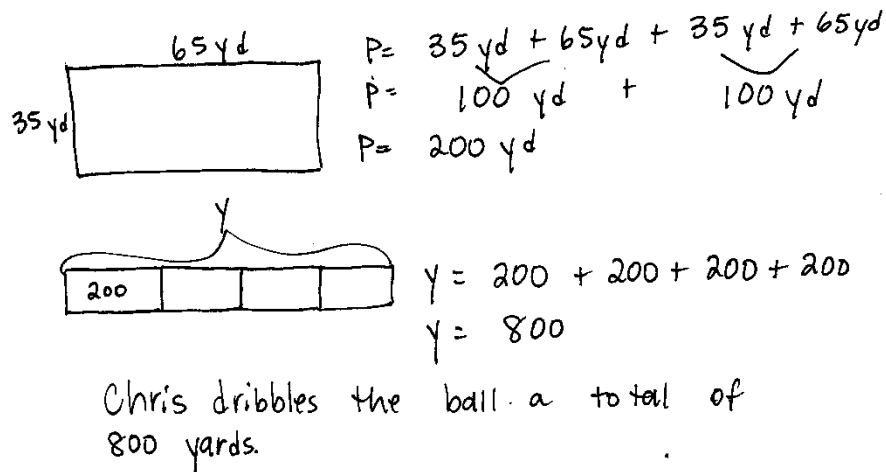 65 yd
35 yd
P= 35 yd + 65yd + 35 yd + 65yd
P= 100 yd + 100 yd
P= 200 yd
y
200
y = 200 + 200 + 200 + 200
y = 800
Chris dribbles the ball a total of
800 yards.